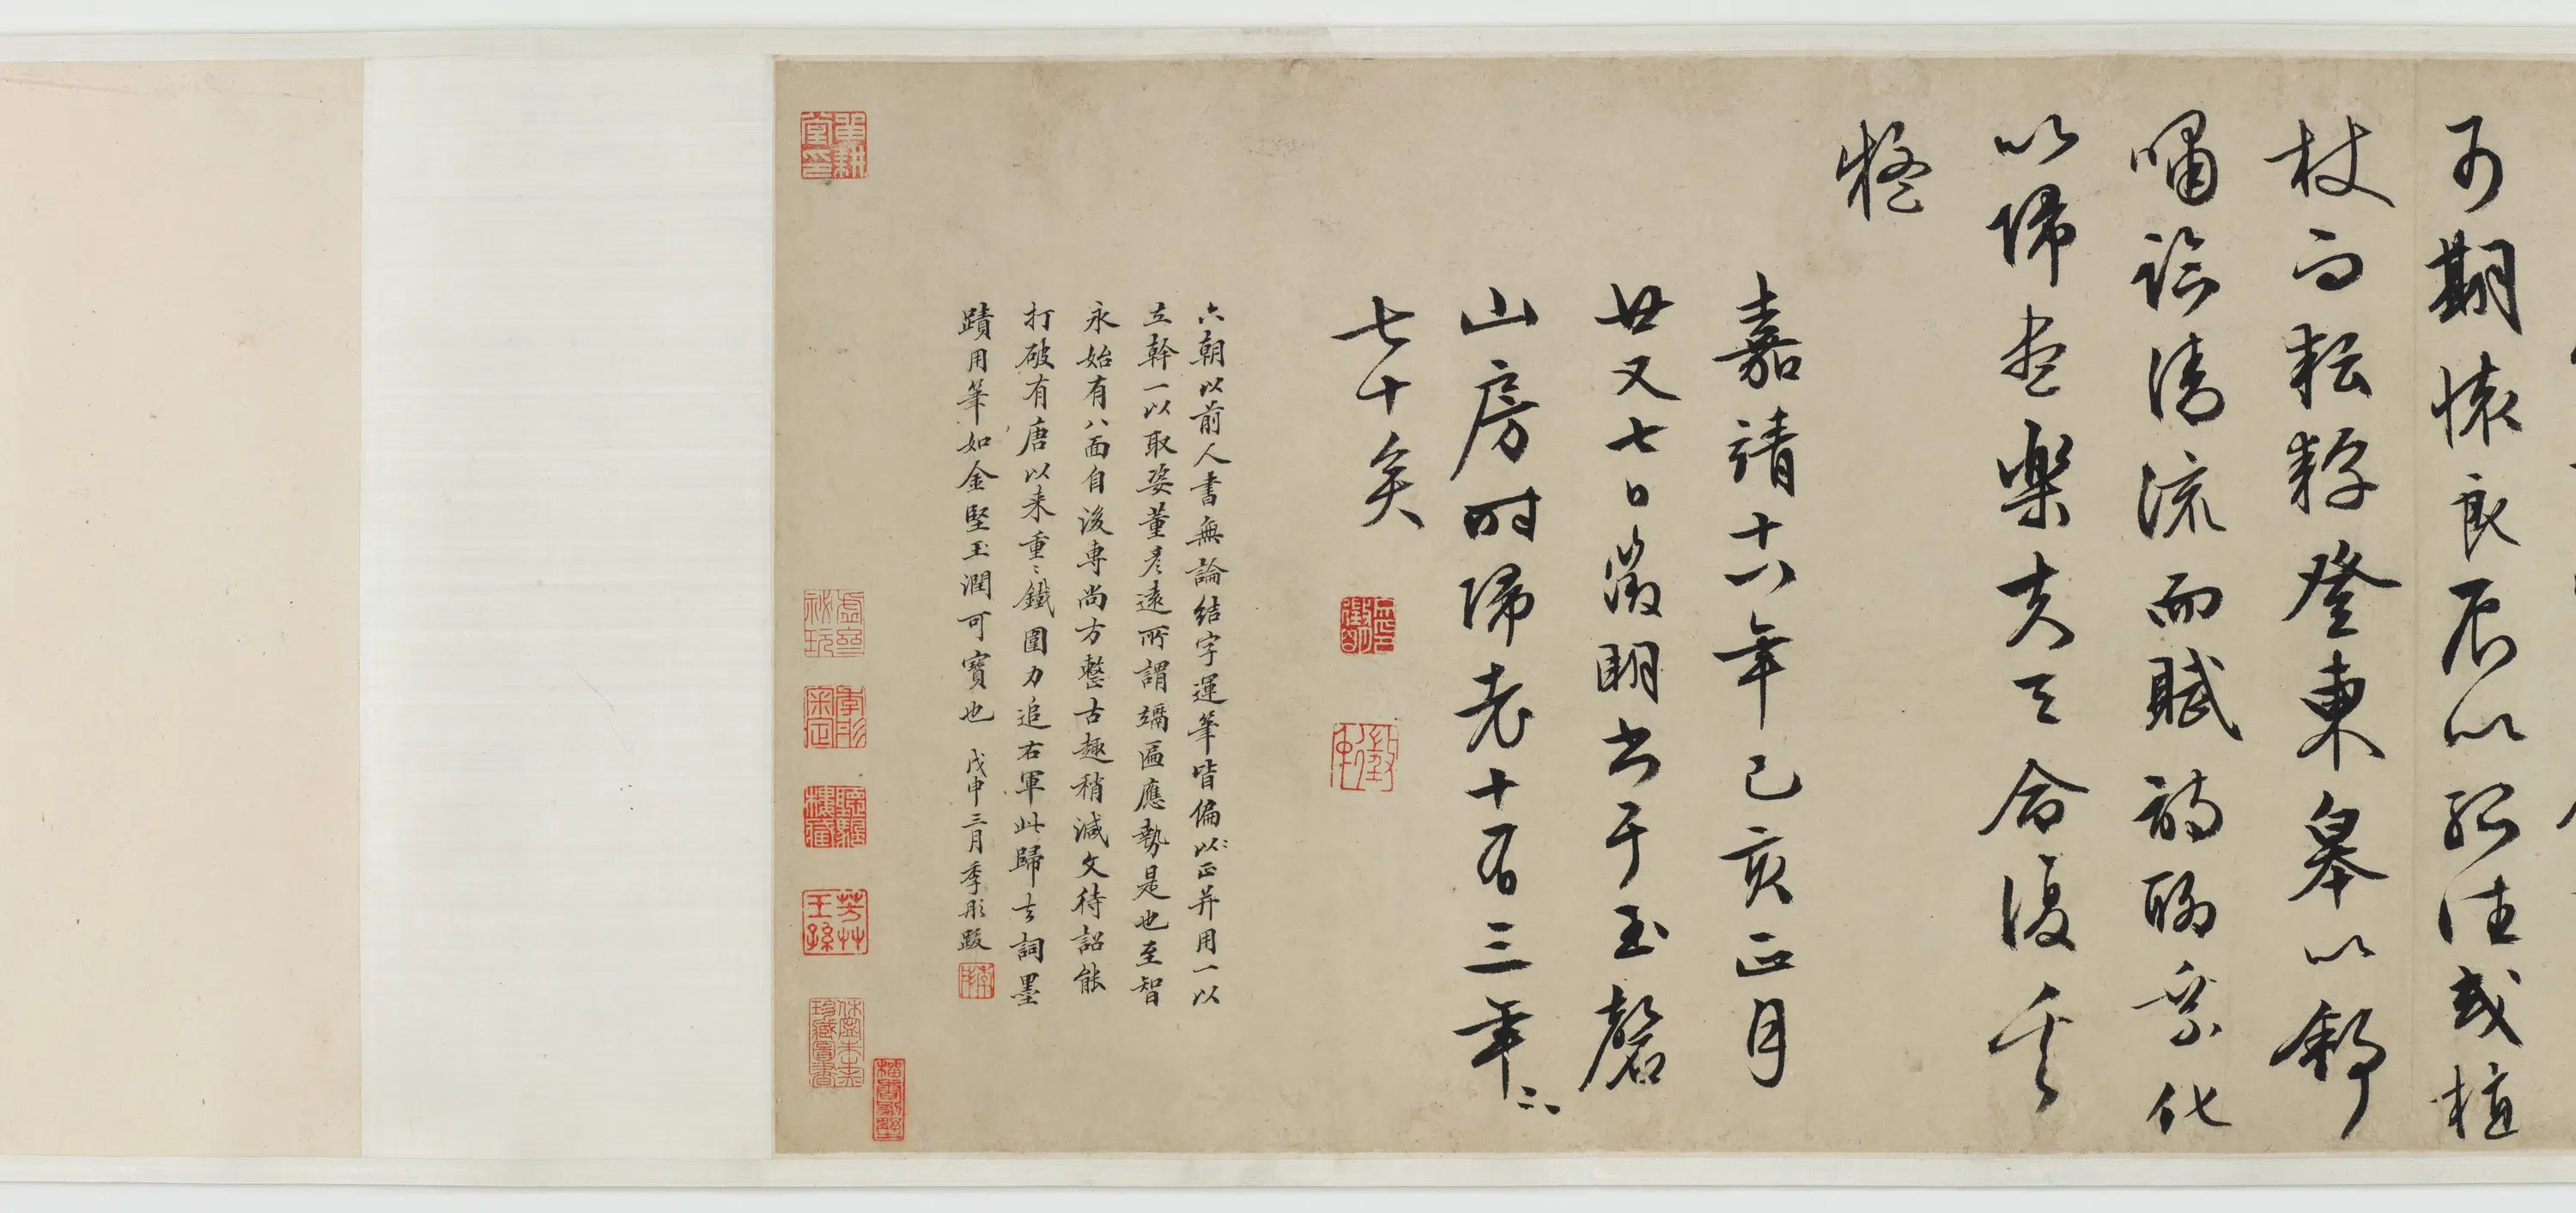 可期懷良辰以孤往或植
杖而耘耔登東皋以舒
嘯臨清流而賦詩聊乘化
以歸盡樂夫天命復奚
疑
嘉靖十八年己亥正月
廿又七日徵明書于玉磬
山房時歸老十有三年年
七十矣
六朝以前人書無論結字運筆皆偏以以正并用一以
立幹一以取姿董彥遠所謂竵匾應勢是也至智
永始有八面自後專尚方整古趣稍減文待詔能
打破有唐以来重重鐵圍力追右軍此歸去詞墨
蹟用筆如金堅玉潤可寶也 戊申三月季彤跋
芳艸
王孫
聽驪
樓藏